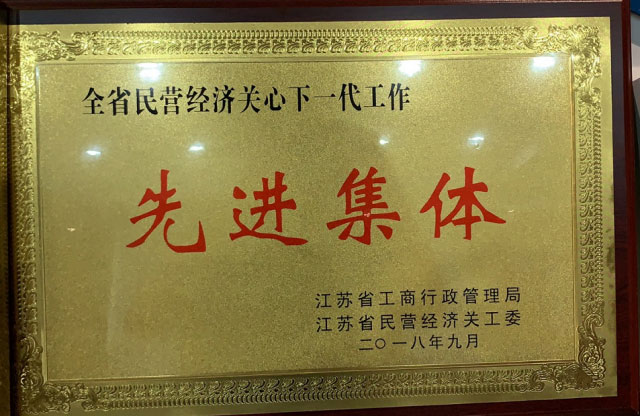 全省民营经济关心下一代工作
先进集体
江苏省工商行政管理局
江苏省民营经济关工委
二〇一八年九月